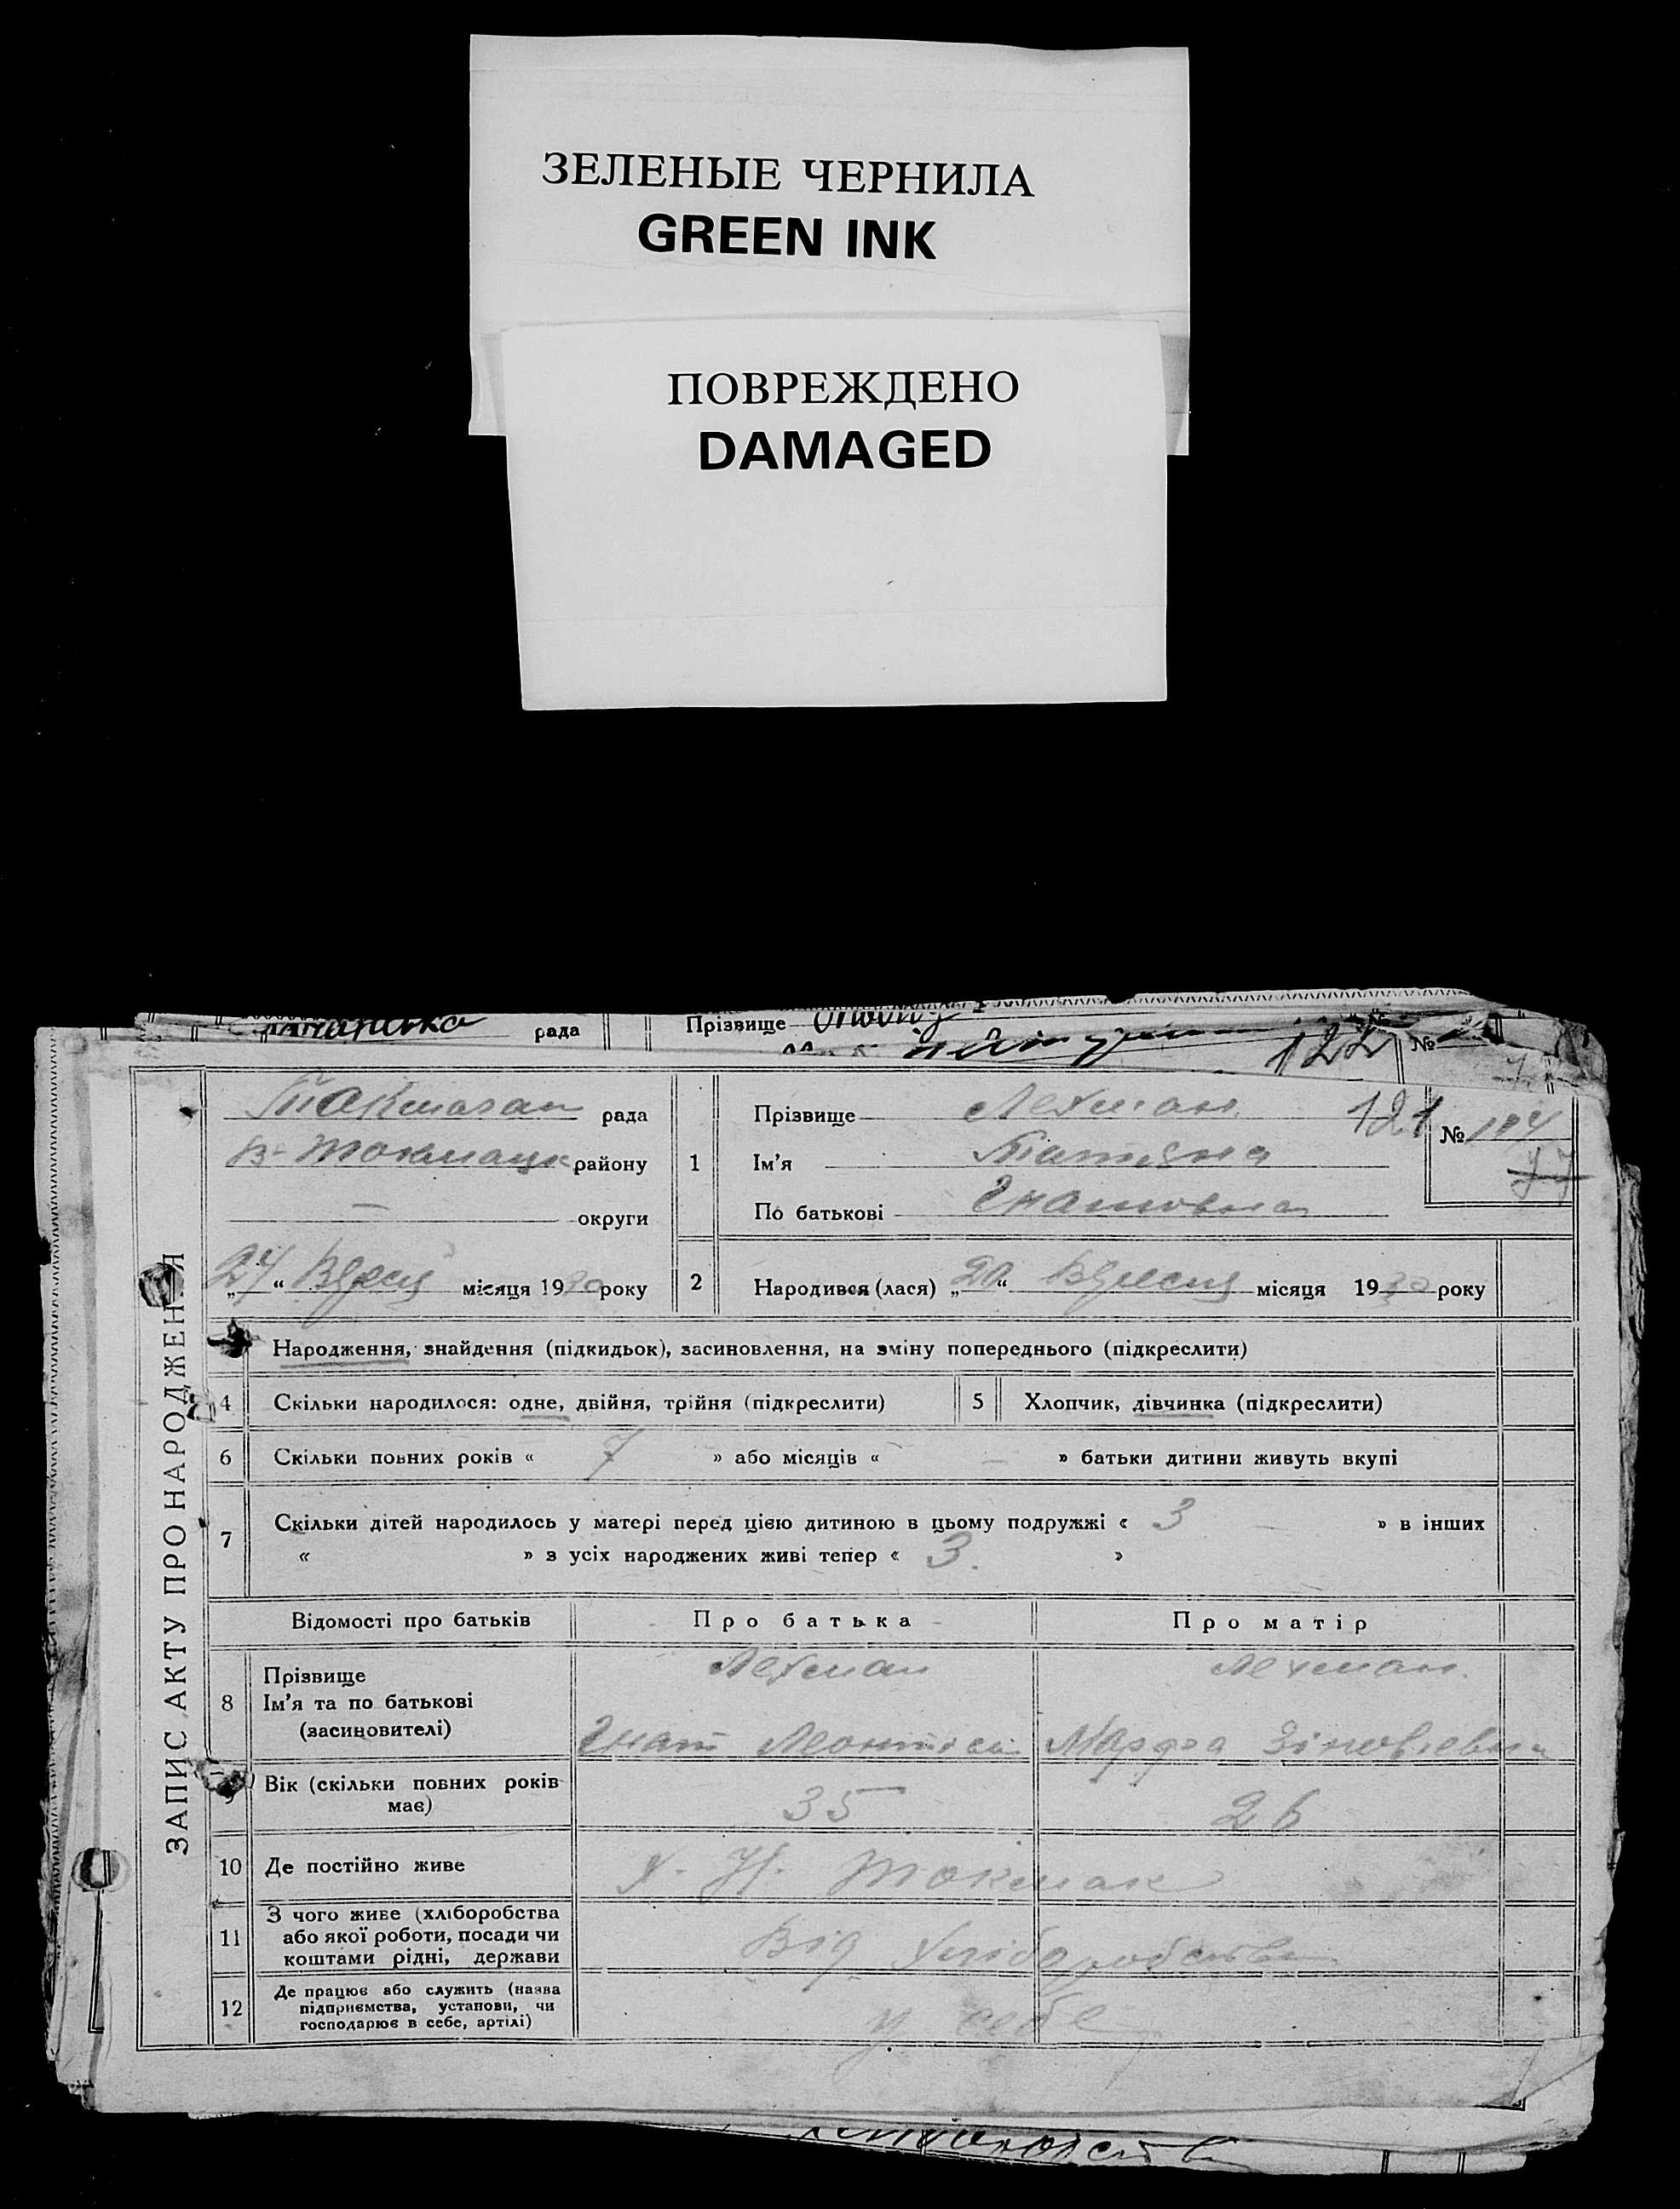 ЗЕЛЕНЫЕ ЧЕРНИЛА
GREEN INK
ПОВРЕЖДЕНО
DAMAGED
рада Прізвище
122 №
рада
В-Токмацьк району
— округи
24 “ Вересня місяця 1930 року
ЗАПИС АКТУ ПРО НАРОДЖЕННЯ
1 Прізвище Лехман 121 №
Ім’я Татяна
По батькові Гнатовна
2 Народився (лася) „ 20 “ Вересня місяця 1930 року
Народження, знайдення (підкидьок), засиновлення, на зміну попереднього (підкреслити)
4 Скільки народилося: одне, двійня, трійня (підкреслити) 5 Хлопчик, дівчинка (підкреслити)
6 Скільки повних років « 7 » або місяців « — » батьки дитини живуть вкупі
7 Скільки дітей народилось у матері перед цією дитиною в цьому подружжі « 3 — » в інших
« » з усіх народжених живі тепер « 3. »
Відомості про батьків Про батька Про матір
8 Прізвище Лехман Лехман
Ім’я та по батькові
(засиновителі) Гнат Марфа Зіновіевна
9 Вік (скільки повних років має) 35 26
10 Де постійно живе х. Н. Токмак
11 З чого живе (хліборобства
або якої роботи, посади чи
коштами рідні, держави Від хліборобства
12 Де працює або служить (назва
підприємства, установи, чи
господарює в себе, артілі) у себе